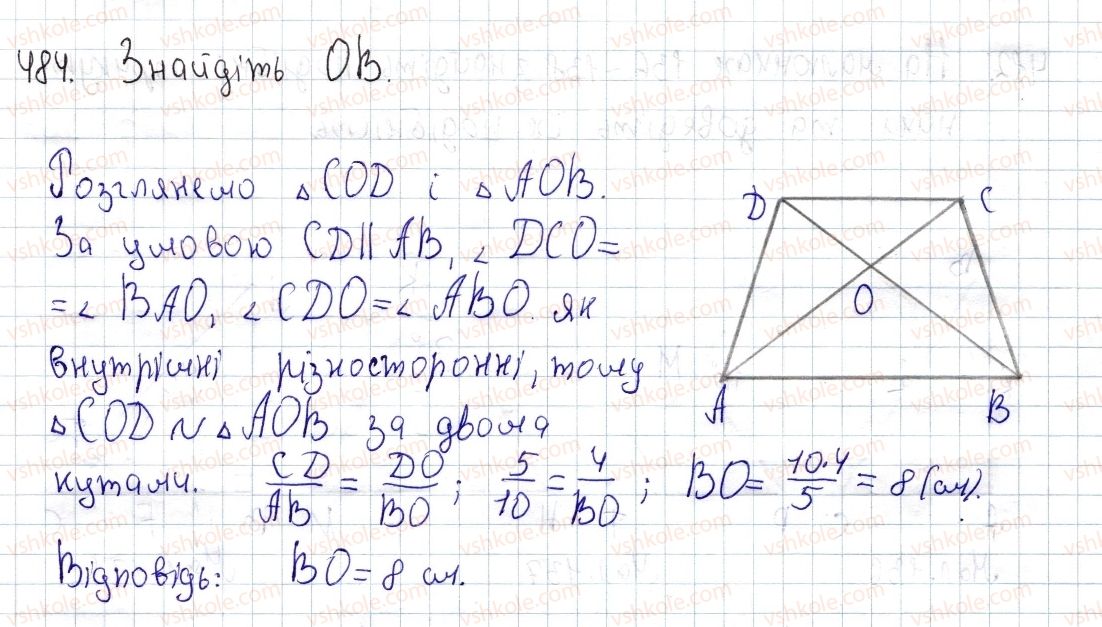 484. Знайдіть OB.
Розглянемо △COD і △AOB.
За умовою CD||AB, ∠DCO=
=∠BAO, ∠CDO=∠ABO. як
внутрішні різносторонні, тому
△COD ~ △AOB за двома
кутами. CD/AB = DO/BO; 5/10 = 4/BO; BO = 10·4/5 = 8 (см).
Відповідь: BO = 8 см.
D C
O
A B